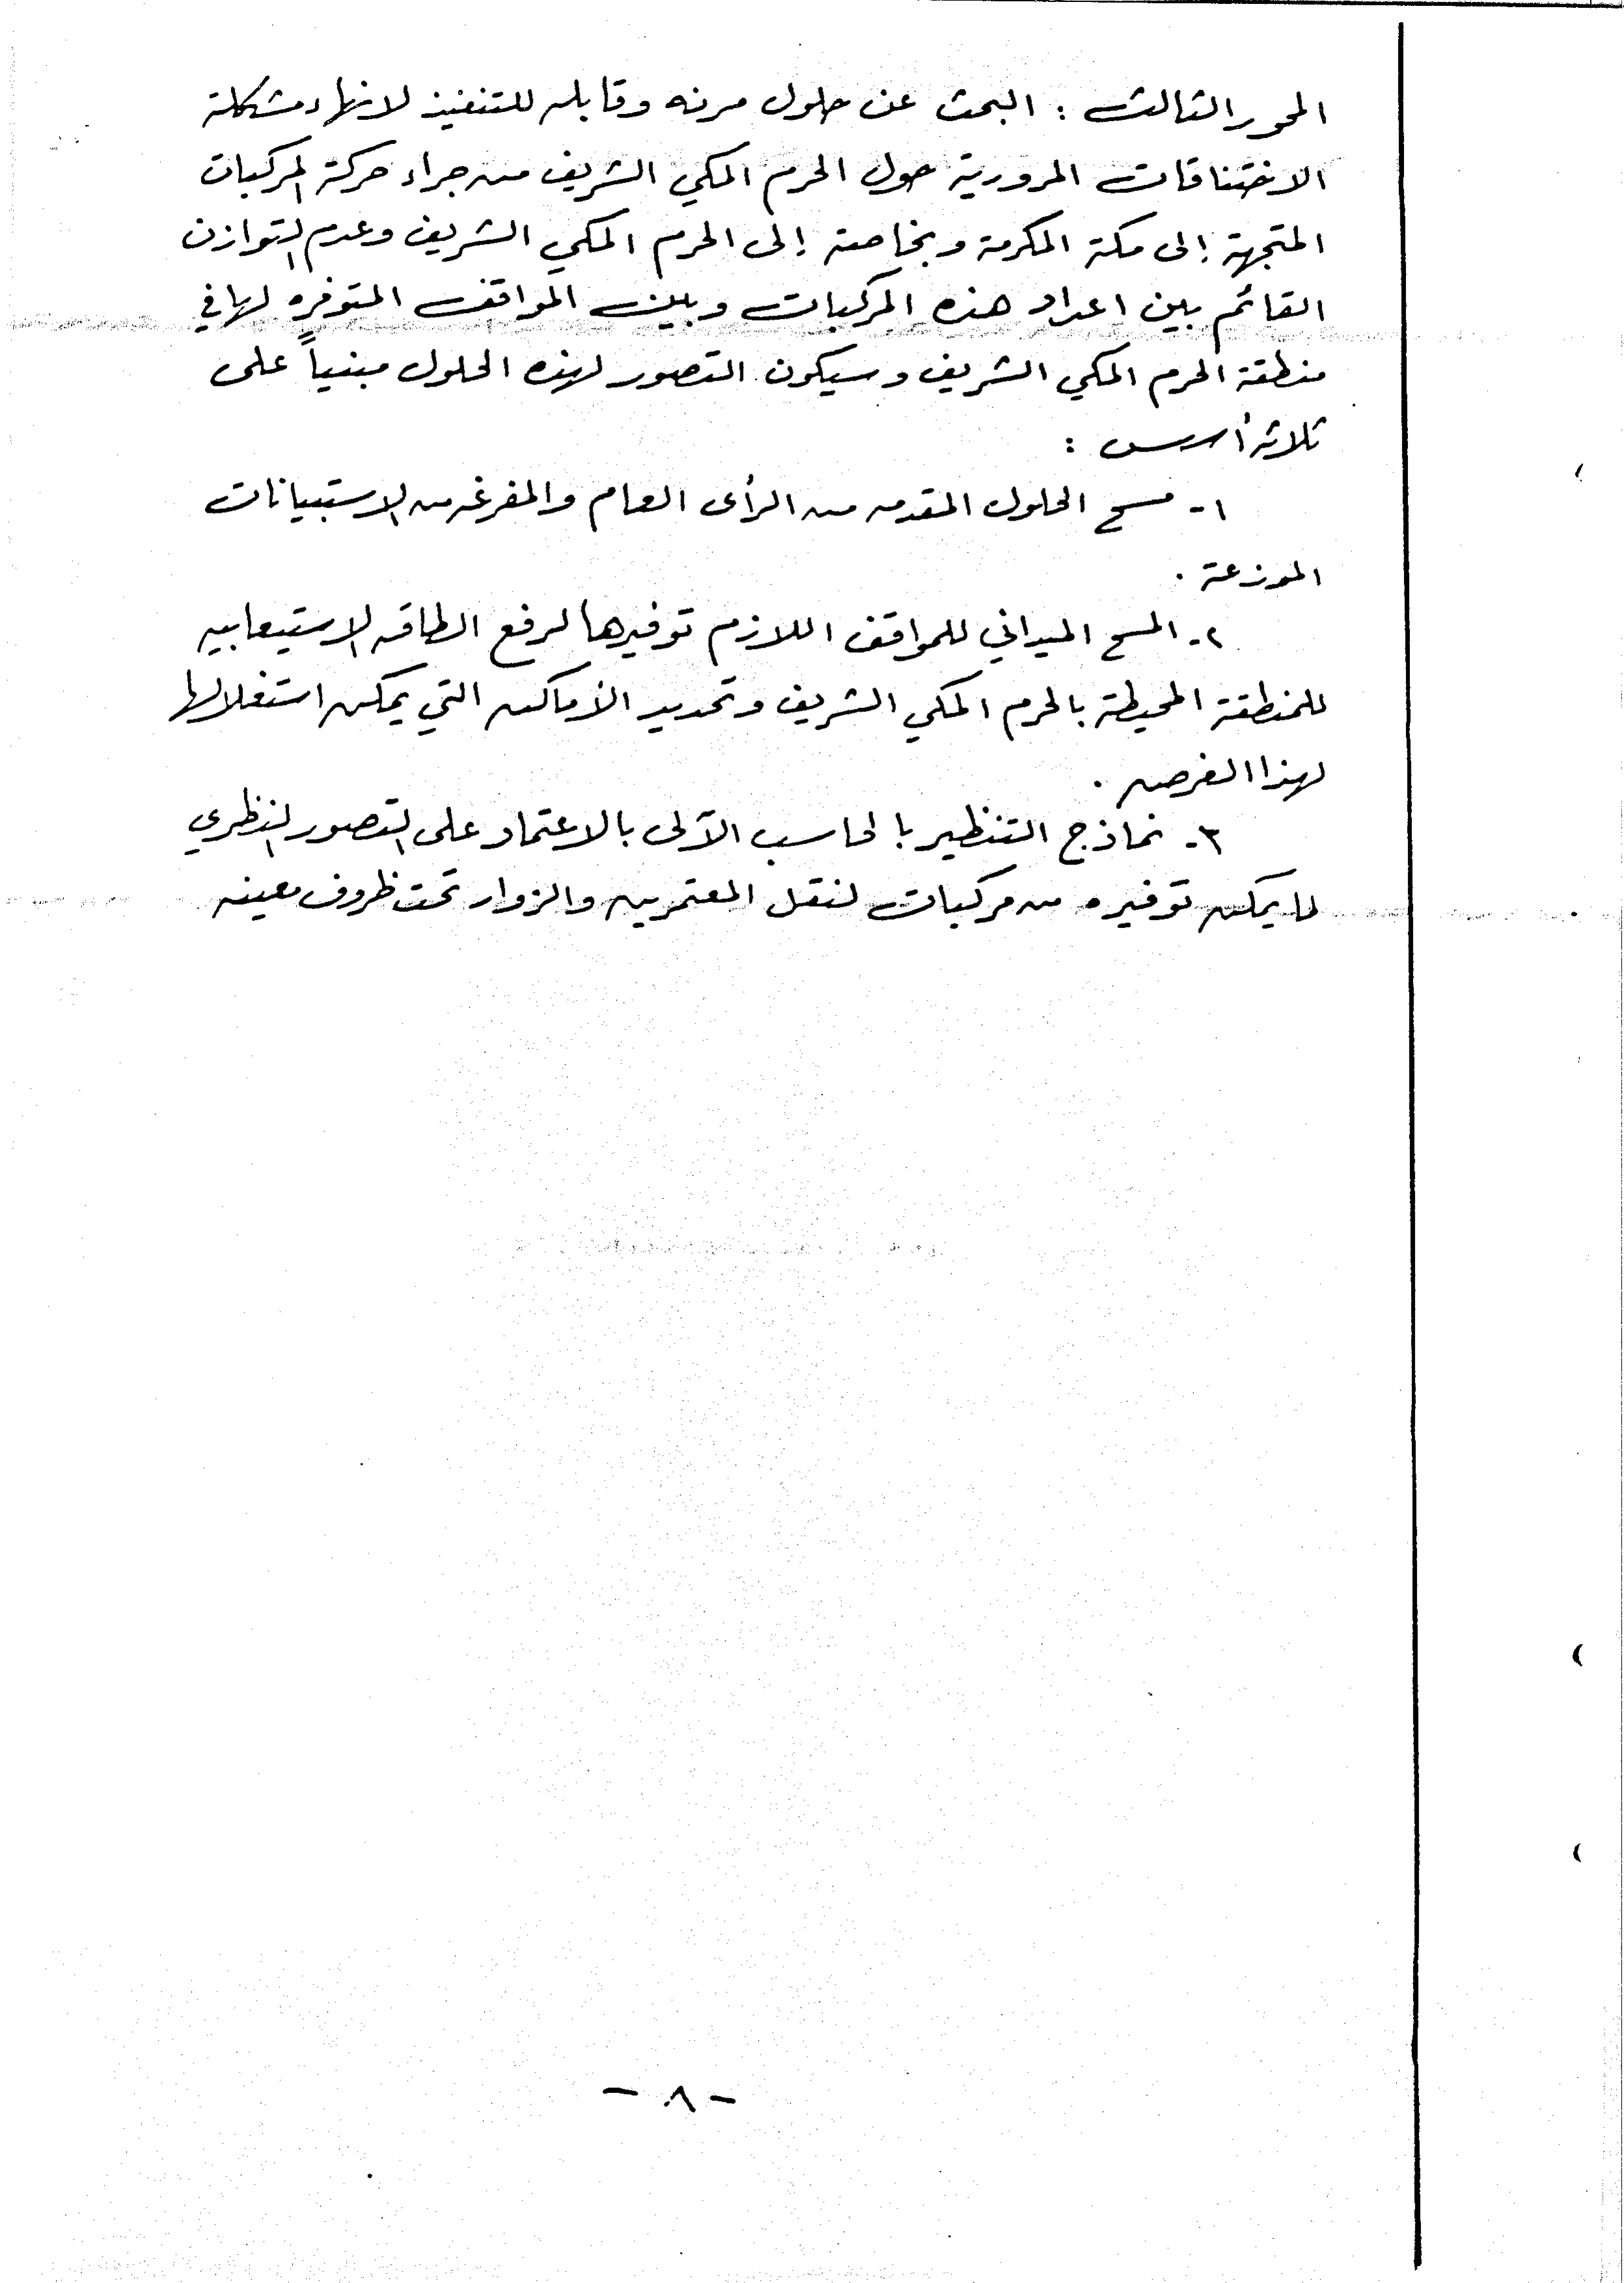 المحور الثالث : البحث عن حلول مرنه وقابله للتنفيذ لانهاء مشكلة
الاختناقات المرورية حول الحرم المكي الشريف من جراء حركة المركبات
المتجهة إلى مكة المكرمة وبخاصة إلى الحرم المكي الشريف وعدم التوازن
القائم بين اعداد هذه المركبات وبين المواقف المتوفره لها في
منطقة الحرم المكي الشريف وسيكون التصور لهذه الحلول مبنياً على
ثلاثة أسس :
١- مسح الحلول المقدمه من الرأى العام والمفرغه من الاستبيانات
الموزعة .
٢- المسح الميداني للمواقف اللازم توفيرها لرفع الطاقه الاستيعابيه
للمنطقة المحيطة بالحرم المكي الشريف وتحديد الأماكن التي يمكن استغلالها
لهذا الغرض .
٣- نماذج التنظير بالحاسب الآلى بالاعتماد على التصور النظري
لما يمكن توفيره من مركبات لنقل المعتمرين والزوار تحت ظروف معينه
- ٨ -